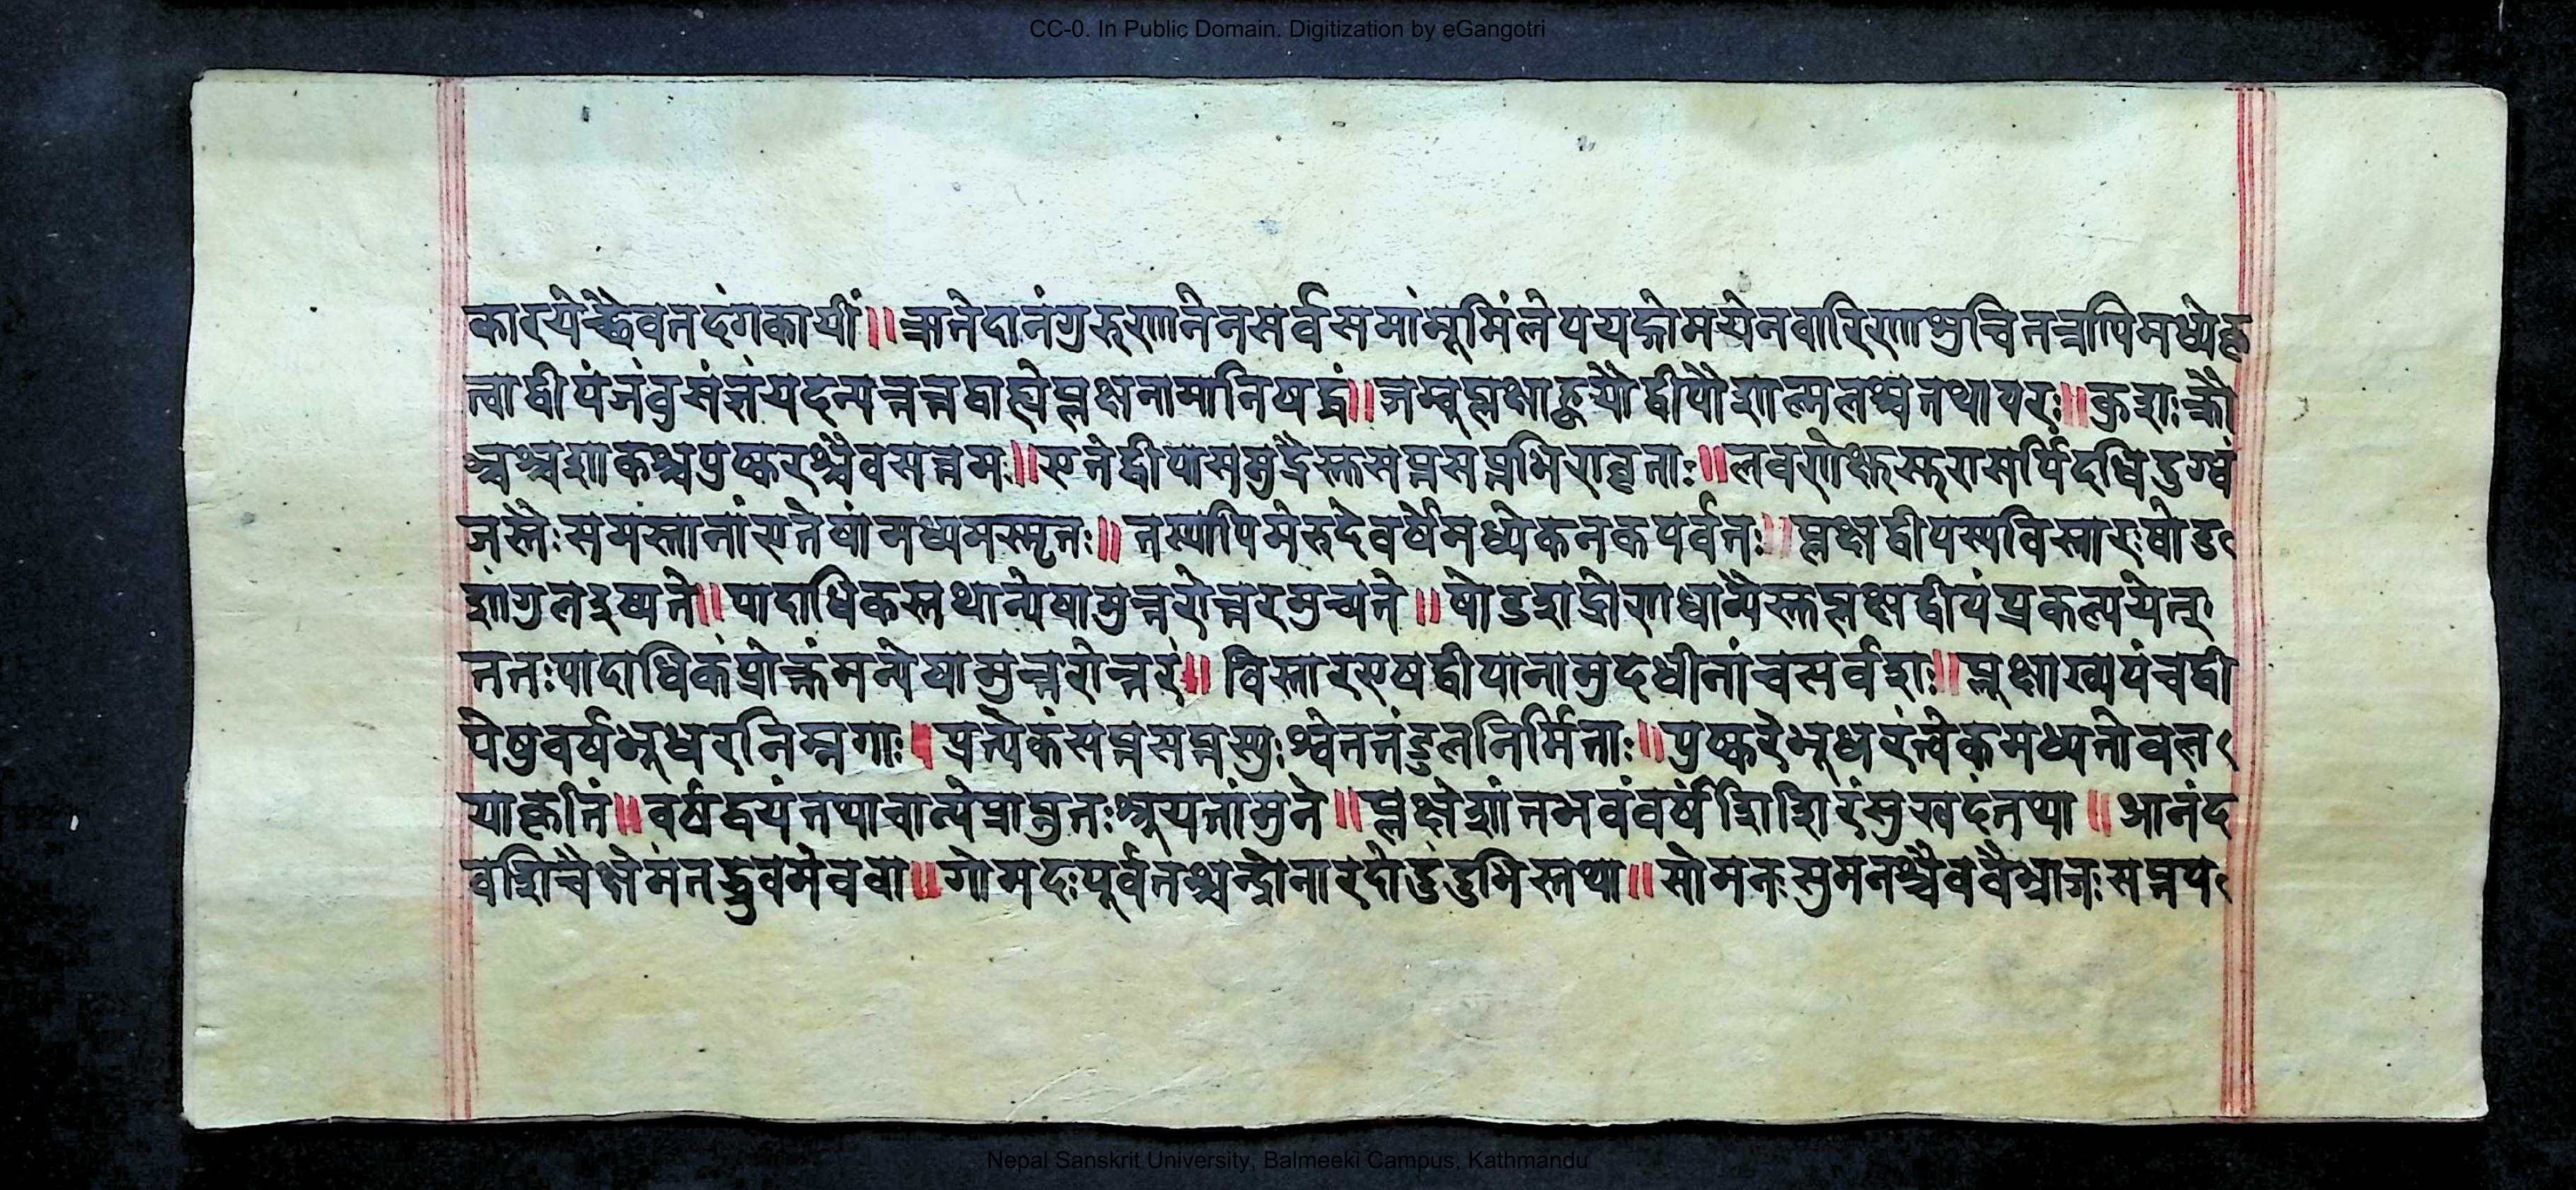 CC-0. In Public Domain. Digitization by eGangotri
कारयेच्छैवतदंगकार्यी॥ स्नानेदानंगुरुणानेनसर्वसमांभूमिंलेपयद्गोमयेनवारिणाशुचितत्रापिमध्येकृ
त्वाद्वीपंजंवुसंज्ञंयदन्यत्तत्तद्वाह्येप्लक्षनामानिषट्कं॥जम्बूप्लक्षाह्वयौद्वीपौशाल्मलश्चतथापरः॥कुशःक्रौ
श्चश्चशाकश्चपुष्करश्चैवसप्तमः॥एतेद्वीपासमुद्रैस्तुसप्तसप्तभिरावृताः॥लवणेक्षुसुरासर्पिदधिदुग्धं
जलैःसमंस्तानांएतेषांमध्यमस्मृतः॥ तस्यापिमेरुदेवर्षेमध्येकनकपर्वतः॥प्लक्षद्वीपस्यविस्तारःषोड
शांगुलइष्यते॥पादाधिकस्तथान्येषामुत्तरोत्तरमुच्यते॥षोडशद्रोणधान्यैस्तुप्लक्षद्वीपंप्रकल्पयेत्
ततःपादाधिकंप्रोक्तंमन्येषामुत्तरोत्तरं॥विस्तारएषद्वीपानामुदधीनांचसर्वशः॥प्लक्षाख्यपंचद्वी
पेषुवर्षभूधरनिम्नगाः।प्रत्येकंसप्तसप्तस्युःश्वेततंडुलनिर्मिताः॥पुष्करेभूधरंत्वेकमध्यतोवल
याकृतिं॥वर्षद्वयंतथाचान्येप्राप्नुतःश्रूयतांमुने॥प्लक्षेशांतभवंवर्षंशिशिरंसुखदंतथा॥आनंद
वशिचैक्षेमंतद्ध्रुवमेववा॥गोमदःपूर्वतश्चन्द्रोनारदोदुंदुभिस्तथा॥सोमतःसुमनश्चैववैभ्राजःसप्तप
Nepal Sanskrit University, Balmeeki Campus, Kathmandu